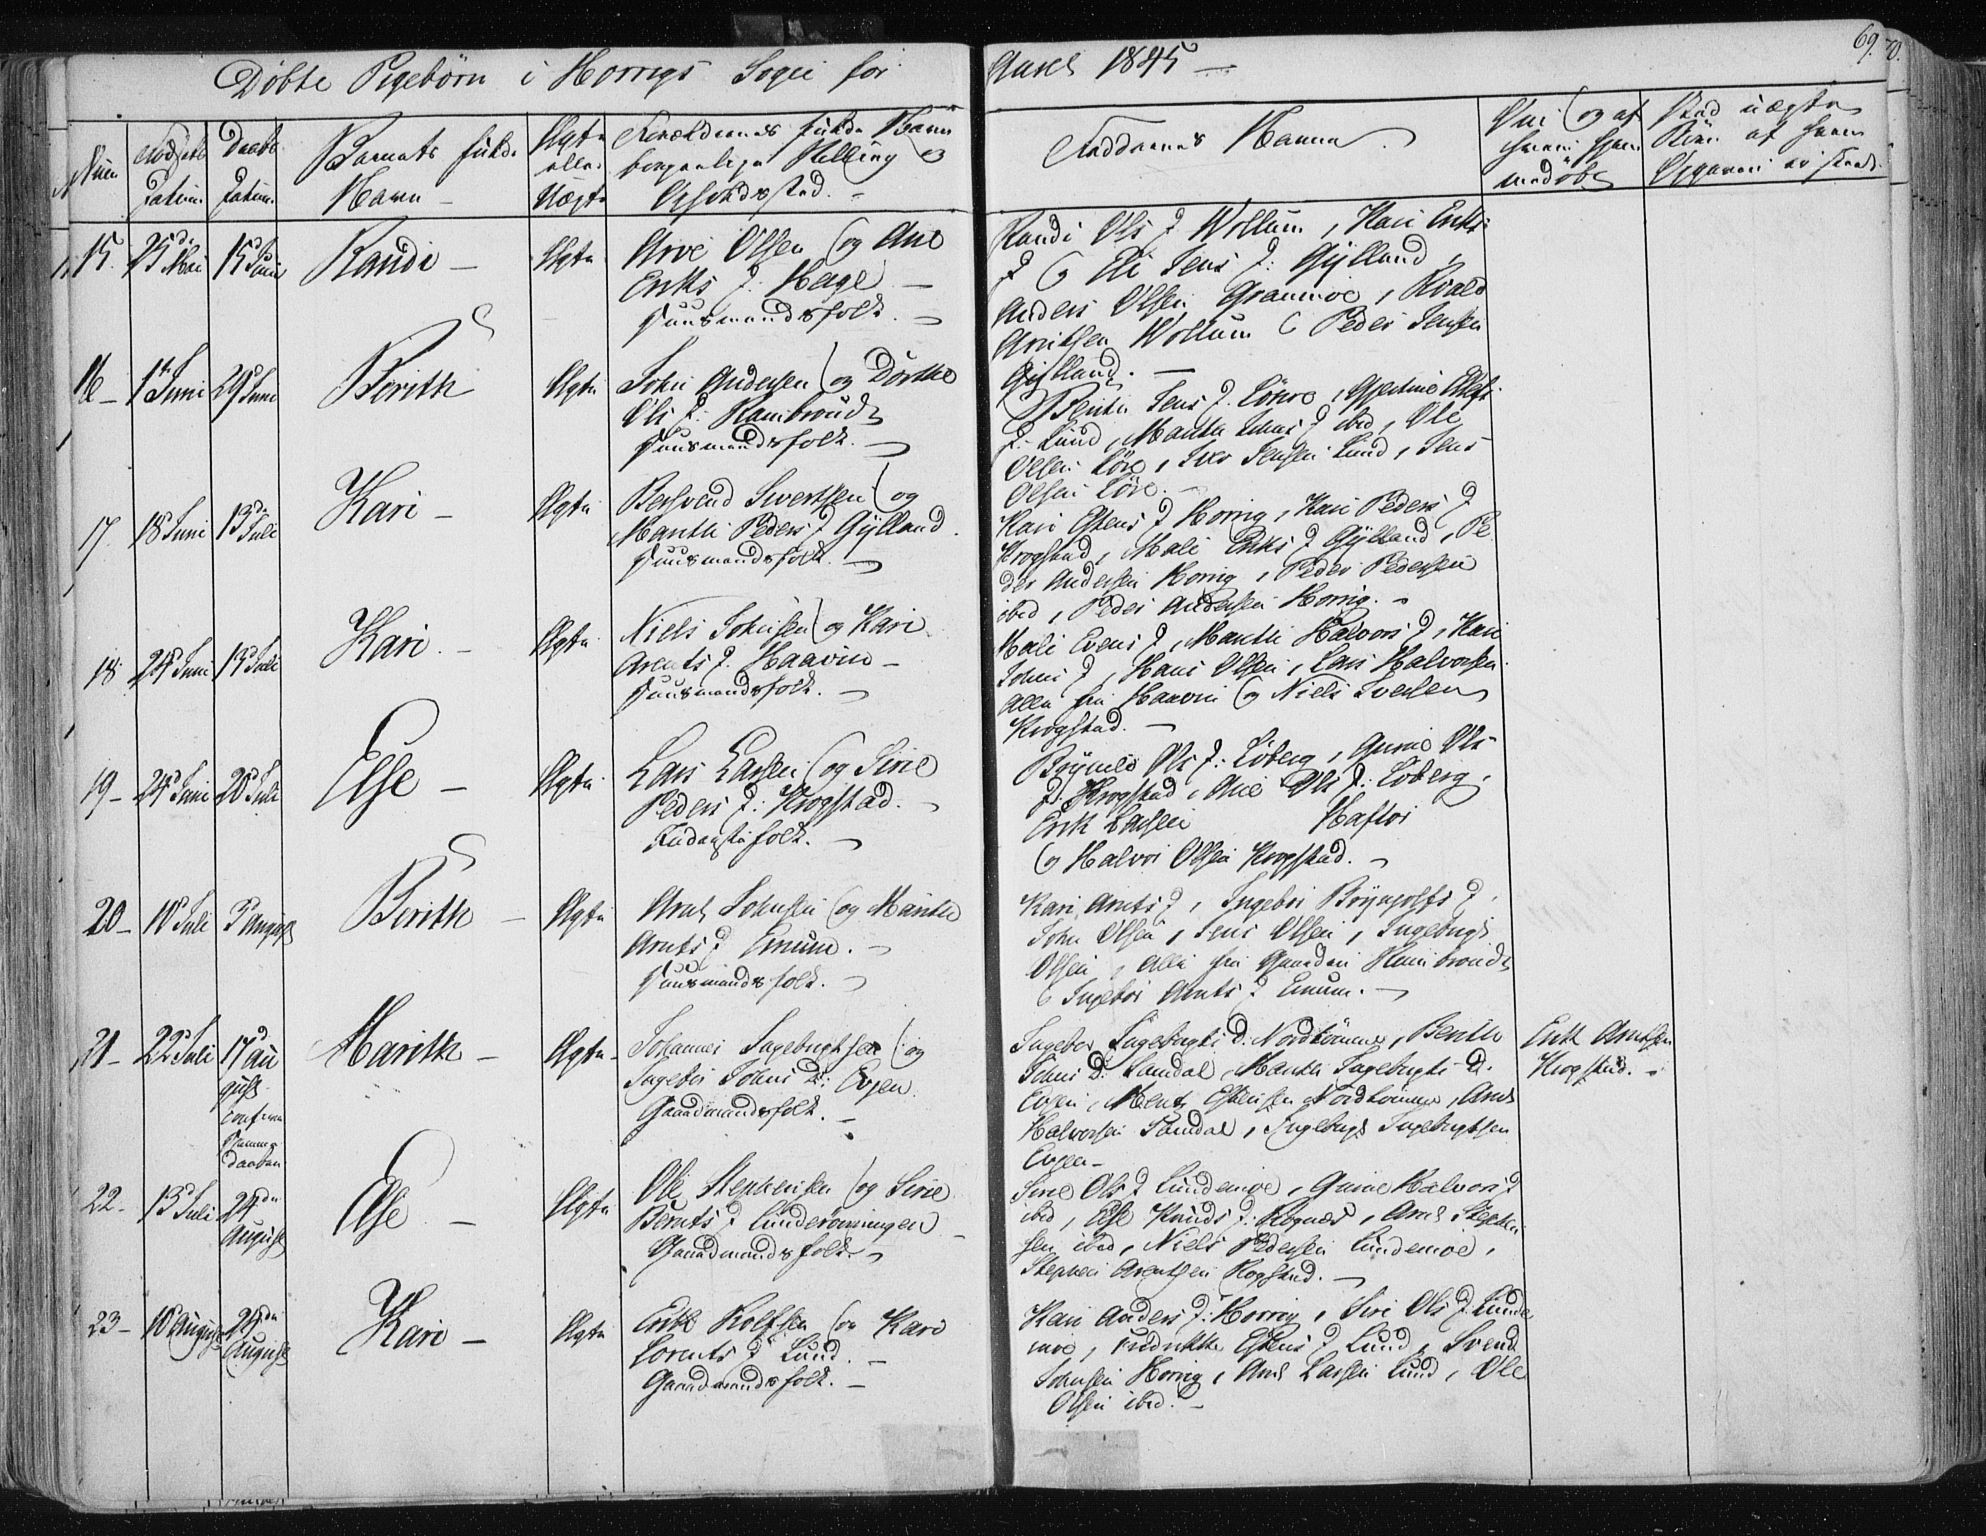 Döbte Pigebörn i Horrigs Sogn for
Aaret 1845 —
69.
Num
Födsels
Datum
Daabs
Datum
Barnets fulde
Navn —
Ægte
eller
Uægte
Forældrenes fulde Navn
borgerlige Stilling og
Opholdssted. —
Faddernes Navne
15.
25d Mai
15d Juni
Randi —
Ægte
Arve Olsen og Ane
Eriks D: Hage —
Huusmandsfolk. —
Randi Ols D Wollum, Kari Eriks
D og Eli Jens D: Gylland,
Anders Olsen Granmoe, Roald
Arntsen Wollum & Peder Jensen
Gylland. —
16 —
1st Juni
29d Juni
Berith
Ægte
John Andersen og Dorthe
Ols D: Rambrouds
Huusmandsfolk. —
Berith Jens D. Löhre,
D: Lund, Marith Johns D ibid, Ole
Olsen Löre, Iver Jensen Lund, Jens
Olsen Löre. —
17.
18d Juni
13d Juli
Kari —
Ægte
Bersvend Sivertsen og
Marith Peders D Gylland.
Huusmandsfolk. —
Kari Estens D Horrig, Kari Peders D
Krogstad, Mali Eriks D Gylland, Pe
der Andersen Horrig, Peder Pedersen
ibid, Peder Andersen Horrig. —
18.
24d Juni
13d Juli
Kari. —
Ægte
Niels Johnsen og Kari
Arents D. Haavin —
Huusmandsfolk. —
Mali Evens D, Marith Halvors D, Kari
Johns D, Hans Olsen, Lars Halvorsen
alle fra Haavin og Niels Iversen
Krogstad. —
19 —
24d Juni
20d Juli
Else —
Ægte
Lars Larsen og Sirie
Peders D: Krogstad. —
Inderstefolk. —
Brynild Ols D: Löberg, Anne Ols
D: Krogstad, Ane Ols D: Löberg,
Erik Larsen Haftor
og Halvor Olsen Krogstad. —
20 —
10d Juli
3d August
Berith —
Ægte
Arnt Johnsen og Marith
Arnts D Emum. —
Huusmandsfolk. —
Kari Arnts D, Ingebor Brynjolfs D,
John Olsen, Jens Olsen, Ingebrigt
Olsen, alle fra Gaarden Rambrouds
& Ingebor Arnts D Emum. —
21 —
22d Juli
17d Au
gust
confirm
hjemme
daaben
Marith —
Ægte —
Johannes Ingebrigtsen og
Ingebor Johns D: Evjen.
Gaardmandsfolk. —
Ingebor Ingebrigts D: Nordtömme, Berith
Johns D: Sandal, Marith Ingebrigts D.
Evjen, Bent Estensen Nordtömme, Arnt
Halvorsen Samdal, Ingebrigt Ingebrigtsen
Evjen —
Erik Arntsen
Krogstad. —
22 —
13d Juli
24de
August
Else —
Ægte
Ole Stephensen og Sirie
Bernts D Lunderönningen —
Gaardmandsfolk. —
Sirie Ols D Lundemoe, Guroe Halvors D
ibid, Else Knuds D: Rognæs, Arnt Stephen
sen ibid, Niels Pedersen Lundemoe,
Stephen Arentsen Rogstad. —
23 —
10d August
24de
August
Kari —
Ægte
Erik Rolfsen og Kari
Lorents D Lund. —
Gaardmandsfolk. —
Kari Anders D: Horrig, Siri Ols D Lunde
moe, Fridrikke Estens D Lund, Svend
Johnsen Horrig, Arnt Larsen Lund, Ole
Olsen ibid. —